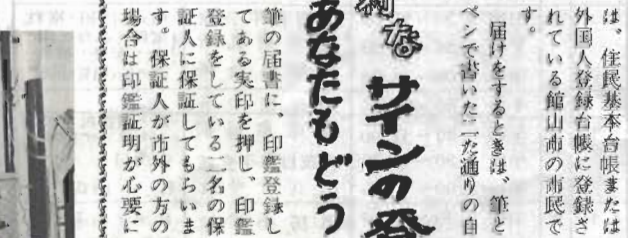 は、住民基本台帳または
外国人登録台帳に登録さ
れている館山市の市民で
す。
届けをするときは、筆と
ペンで書いた二た通りの自
な サインの登
あなたもどう
筆の届書に、印鑑登録し
てある実印を押し、印鑑
登録をしている二名の保
証人に保証してもらいま
す。保証人が市外の方の
場合は印鑑証明が必要に